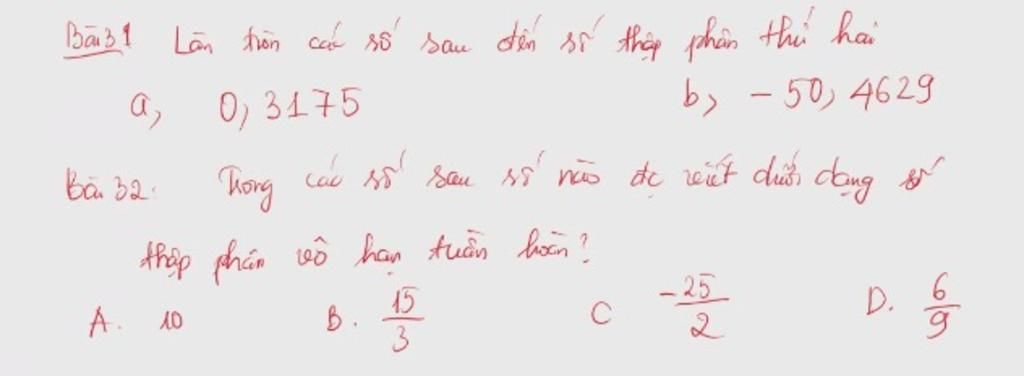 Bài 31 Làm tròn các số sau đến số thập phân thứ hai
a, 0,3175 b, -50,4629
Bài 32: Trong các số sau số nào đc viết dưới dạng số
thập phân vô hạn tuần hoàn?
A. 10 B. 15/3 C -25/2 D. 6/9